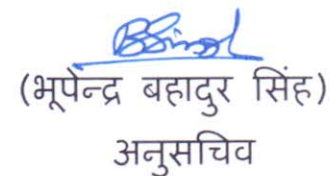 (भूपेन्द्र बहादुर सिंह)
अनुसचिव